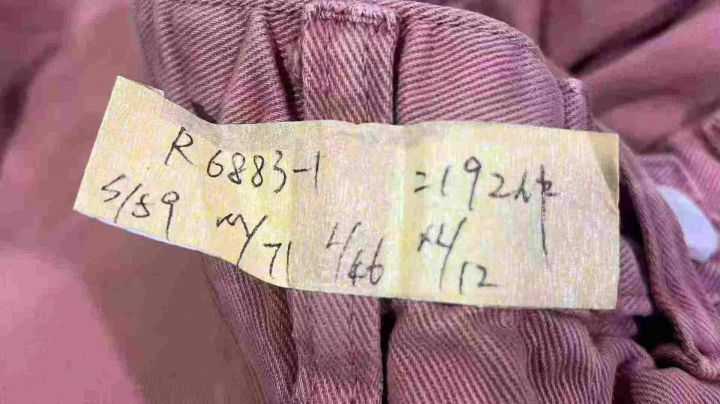 R 6883-1 =192件
S/59 M/71 L/46 XL/12